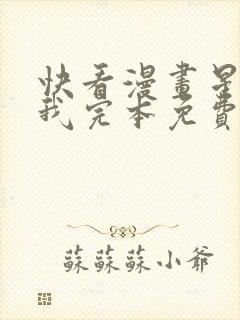 快看漫畫星
我完本免費
蘇蘇蘇小爺